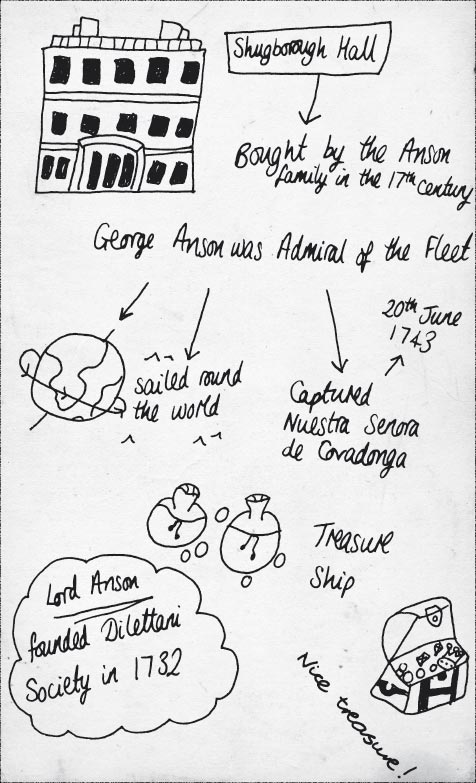 Shugborough Hall
Bought by the Anson
family in the 17th century
George Anson was Admiral of the Fleet
20th June
1743
sailed round
the world
Captured
Nuestra Senora
de Covadonga
Treasure
Ship
Lord Anson
founded Dilettani
Society in 1732
Nice treasure!